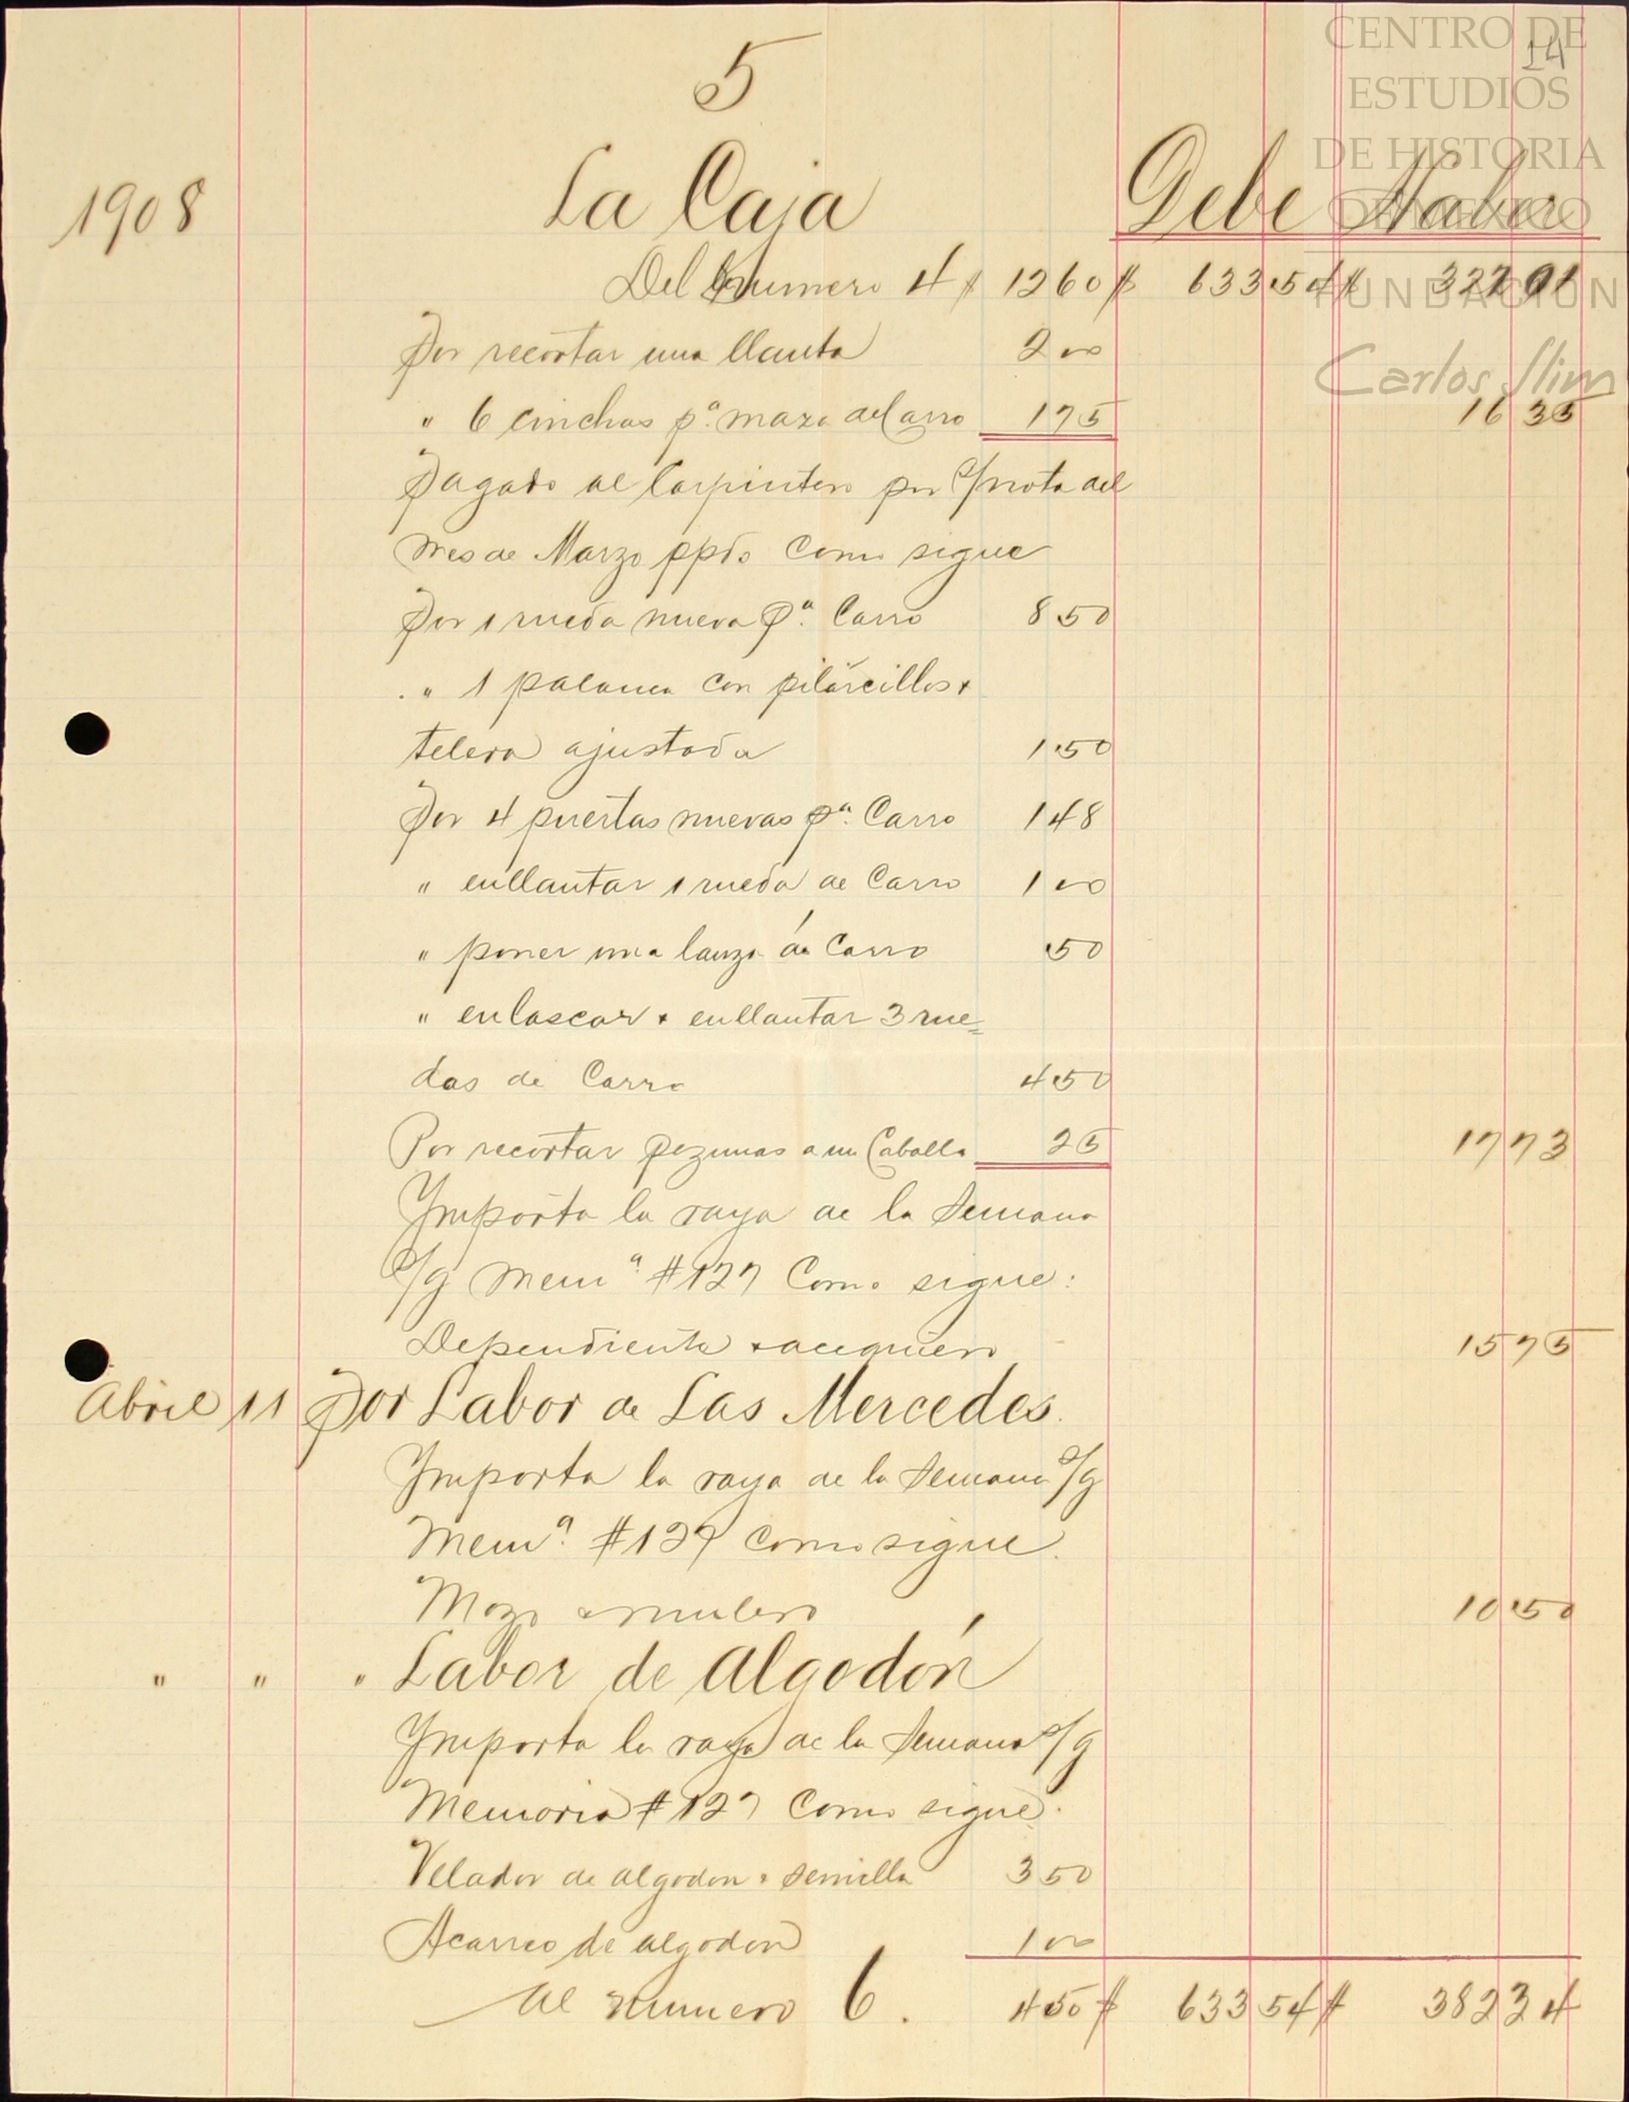 5
14
CENTRO DE
ESTUDIOS
DE HISTORIA
DE MEXICO
FUNDACIÓN
Carlos Slim
1908 La Caja Debe Haber
Del Numero 4 $ 12 60 $ 633 54 $ 322 01
Por recortar una llanta 2 00
" 6 cinchos pª. maza de Carro 1 75 16 35
Pagado al Carpintero por c/nota del
mes de Marzo ppdo como sigue
Por 1 rueda nueva pª. Carro 8 50
" 1 palanca con pilarcillos +
telera ajustada 1 50
Por 4 puertas nuevas pª. Carro 1 48
" enllantar 1 rueda de Carro 1 00
" poner una lanza á Carro 50
" enlascar + enllantar 3 rue=
das de Carro 4 50
Por recortar pezunas a un Caballo 25 17 73
Ymporta la raya de la Semana
s/g Memª #127 Como sigue:
Dependiente + acequiero 15 75
Abril 11 Por Labor de Las Mercedes.
Ymporta la raya de la Semana s/g
Memª. #127 como sigue.
Mozo + mulero 10 50
" " " Labor de Algodón
Ymporta la raya de la Semana s/g
Memoria # 127 Como sigue.
Velador de algodon + semilla 3 50
Acarreo de algodon 1 00
Al numero 6. 4 50 $ 633 54 $ 382 34